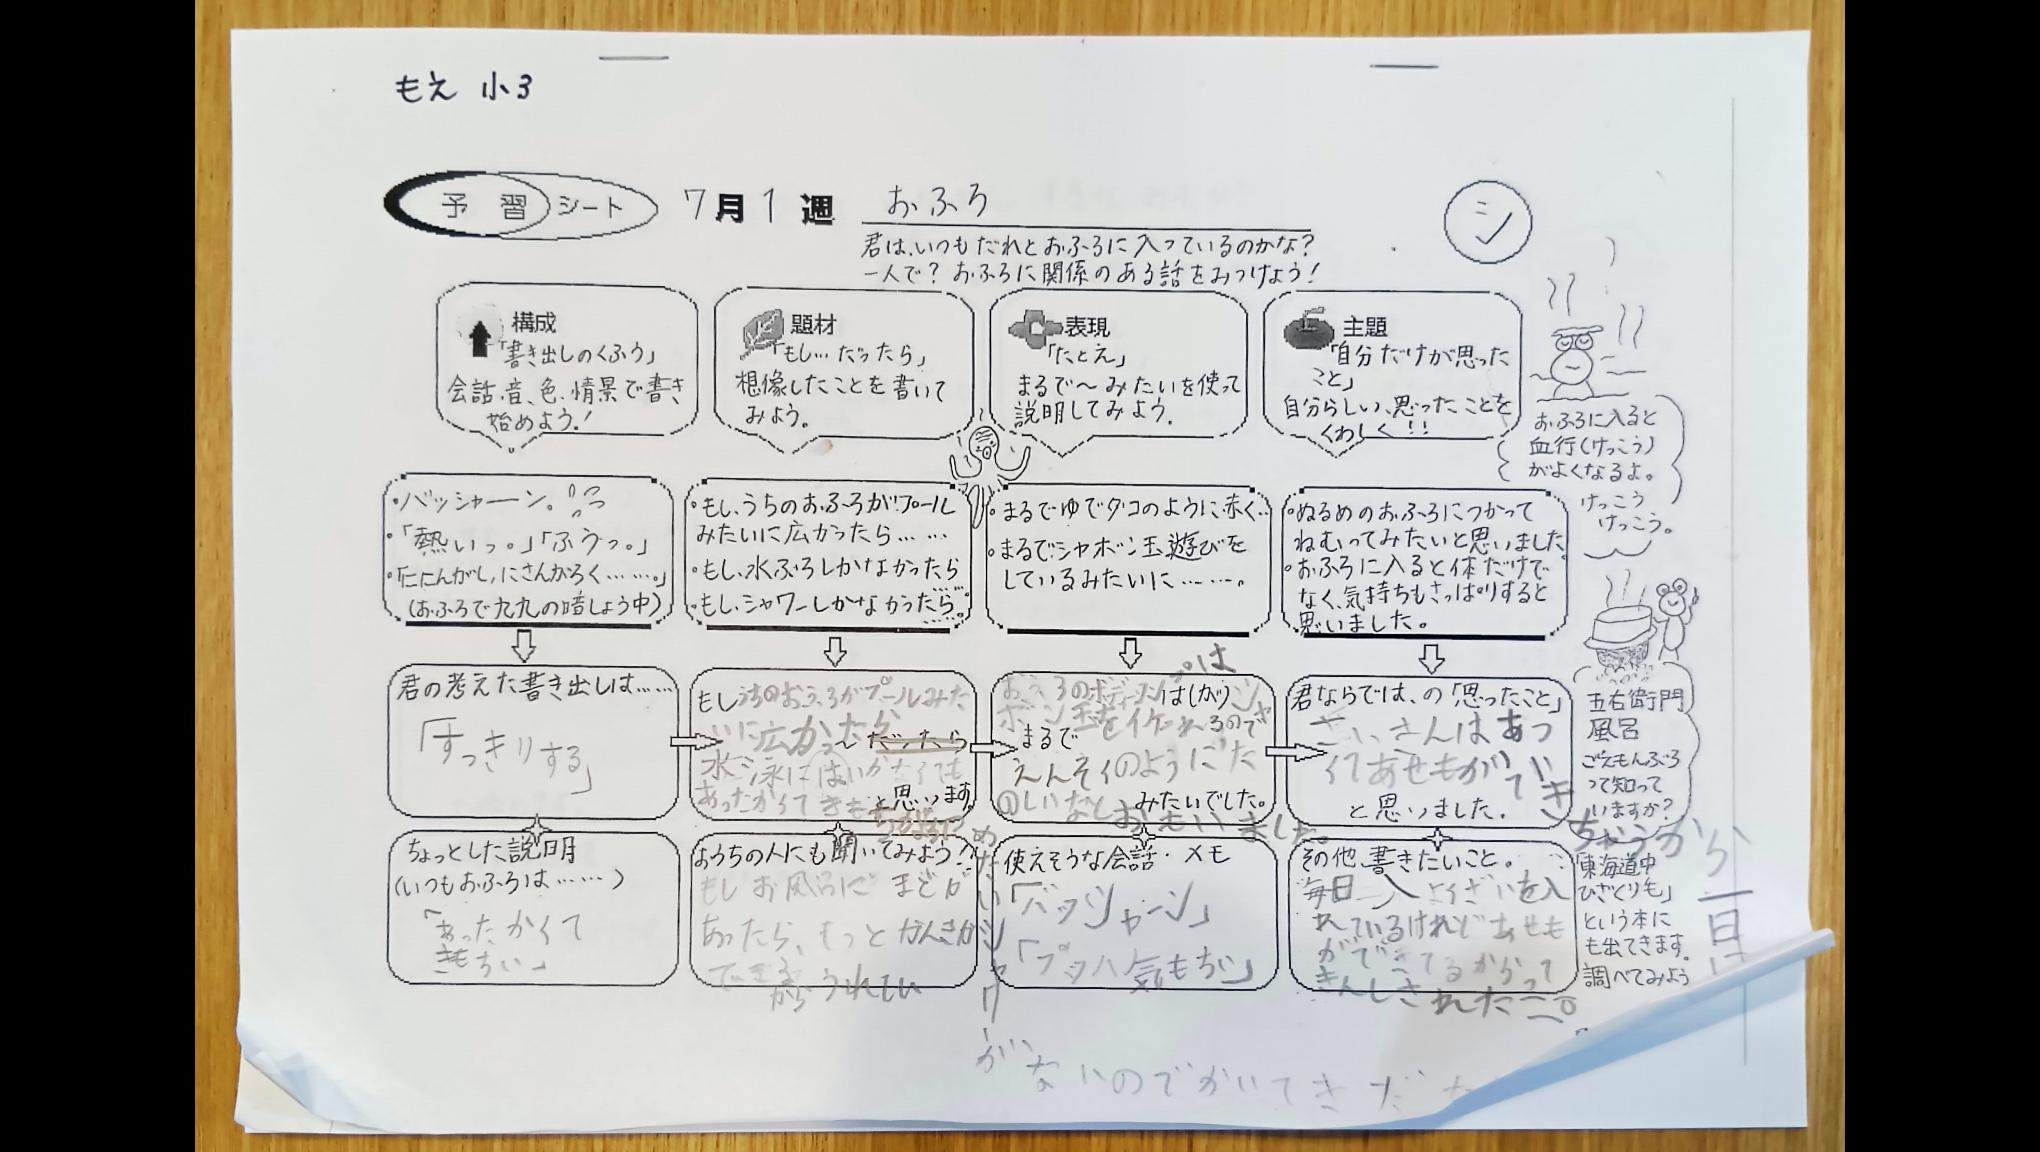 もえ 小3
予習シート 7月1週 おふろ
シ
君は、いつもだれとおふろに入っているのかな?
一人で? おふろに関係のある話をみつけよう!
構成
「書き出しのくふう」
会話、音、色、情景で書き
始めよう!
題材
「もし…だったら」
想像したことを書いて
みよう。
表現
「たとえ」
まるで〜みたいを使って
説明してみよう。
主題
「自分だけが思った
こと」
自分らしい、思ったことを
くわしく!!
おふろに入ると
血行(けっこう)
がよくなるよ。
けっこう
けっこう。
・バッシャーン。
・「熱いっ。」「ふうっ。」
・「ににんがし、にさんがろく……。」
(おふろで九九の暗しょう中)
・もし、うちのおふろがプール
みたいに広かったら……
・もし、水ぶろしかなかったら
・もし、シャワーしかなかったら……。
・まるでゆでダコのように赤く…
・まるでシャボン玉遊びを
しているみたいに……。
・ぬるめのおふろにつかって
ねむってみたいと思いました
・おふろに入ると体だけで
なく、気持ちもさっぱりすると
思いました。
君の考えた書き出しは……
「すっきりする」
もしうちのおふろがプールみた
いに広かったら
水泳にはいかなくても
あったかくてきも
と思います
まるで
みたいでした。
君ならではの「思ったこと」
と思いました。
五右衛門
風呂
ごえもんぶろ
って知って
いますか?
「東海道中
ひざくりも」
という本に
も出てきます。
調べてみよう
ちょっとした説明
(いつもおふろは……)
「あったかくて
きもちい」
おうちの人にも聞いてみよう!
もしお風呂にまどが
あったら、もっとかんきが
できるからうれしい
使えそうな会話・メモ
「バッシャーン」
「プッハ気もちぃ」
その他、書きたいこと。
ないのでかいてきだ